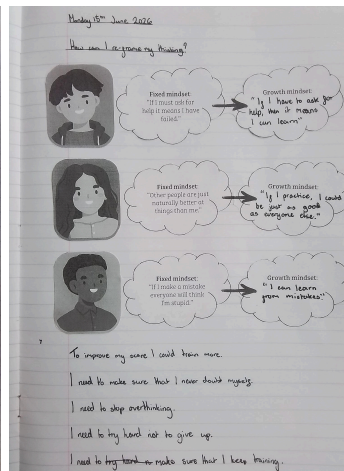 Monday 15th June 2026
How can I re-frame my thinking?
Fixed mindset:
"If I must ask for
help it means I have
failed."
Growth mindset:
"If I have to ask for
help, then it means
I can learn"
Fixed mindset:
"Other people are just
naturally better at
things than me."
Growth mindset:
"If I practice, I could
be just as good
as everyone else."
Fixed mindset:
"If I make a mistake
everyone will think
I'm stupid."
Growth mindset:
"I can learn
from mistakes"
7
To improve my score I could train more.
I need to make sure that I never doubt myself.
I need to stop overthinking.
I need to try hard not to give up.
I need to try hard n make sure that I keep training.